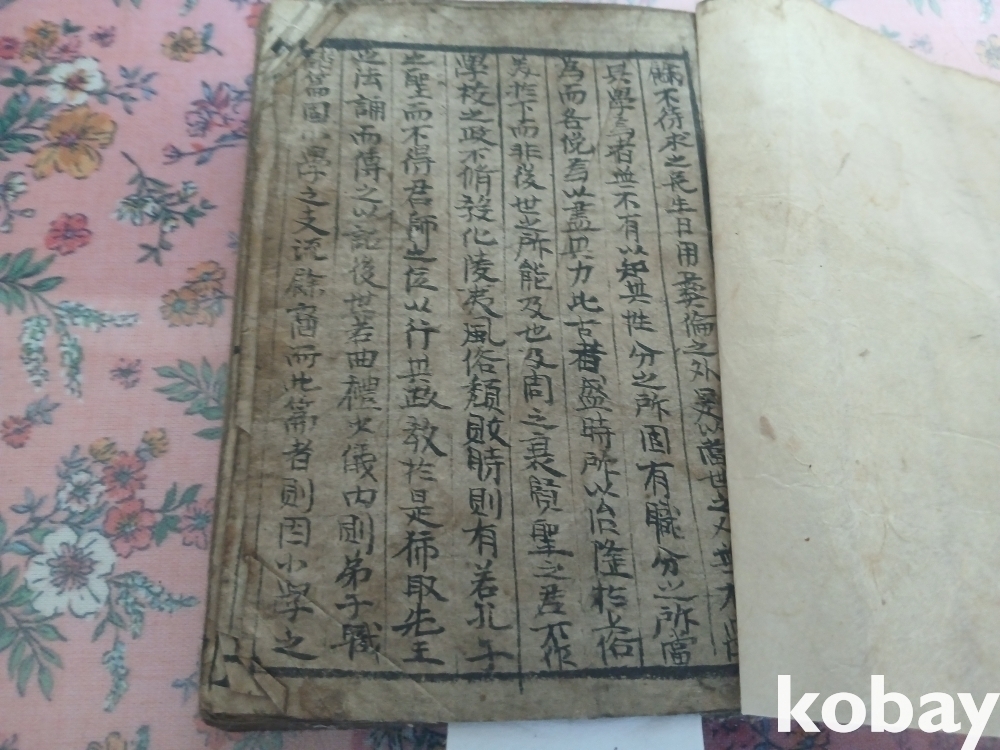 不待求之民生日用彝倫之外是以當世之人無不
其學焉者無不有以知其性分之所固有職分之所當
為而各俛焉以盡其力此古昔盛時所以治隆扵上俗
美扵下而非後世之所能及也及周之衰賢聖之君不作
學校之政不脩敎化陵夷風俗頹敗時則有若孔子
之聖而不得君師之位以行其政敎扵是獨取先王
之法誦而傳之以詔後世若曲禮少儀內則弟子職
諸篇固小學之支流餘裔而此篇者則因小學之
kobay